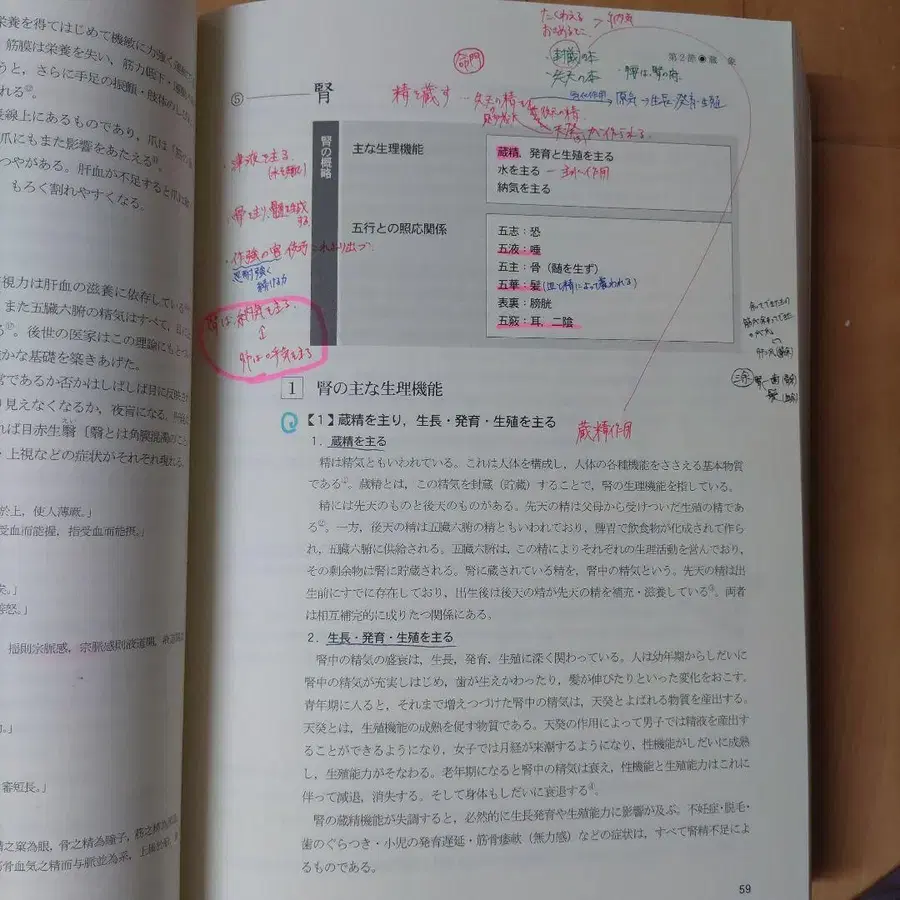 栄養を得てはじめて機敏に力強く運動で
筋膜は栄養を失い，筋力低下・運動
うと，さらに手足の振顫・肢体のしび
れる
長線上にあるものであり，爪は「筋の
爪にもまた影響をあたえる
つやがある。肝血が不足すると爪は
もろく割れやすくなる。
視力は肝血の滋養に依存している
また五臓六腑の精気はすべて，目に
る。後世の医家はこの理論にもとづ
かな基礎を築きあげた。
常であるか否かはしばしば目に反映され
見えなくなるか，夜盲になる。
れば目赤生翳〔翳とは角膜混濁のこと
・上視などの症状がそれぞれ現れる。
於上，使人薄厥。」
受血而能握，指受血而能摂。」
矣。」
善怒。」
揺則宗脈感，宗脈感則液道開，
審短長。」
精之窠為眼，骨之精為瞳子，筋之精為
筋骨血気之精而与脈並為系，上
たくわえる
おさめること
→納気
第2節●蔵象
命門
封蔵の本
・先天の本
⑤
腎
精を蔵す
原気→生長・発育・生殖
後天の精
天癸が作られる
・津液を主る
・骨を主り，髄を生成
する
・作強の官 伎巧これより出づ
忍耐強く
続ける力
腎は納気を主る
↕
肺は呼気を主る
腎の概略
主な生理機能
蔵精，発育と生殖を主る
水を主る
納気を主る
五行との照応関係
五志：恐
五液：唾
五主：骨（髄を生ず）
五華：髪(血と精によって養われる)
表裏：膀胱
五竅：耳，二陰
1 腎の主な生理機能
Q【1】蔵精を主り，生長・発育・生殖を主る
蔵精作用
1．蔵精を主る
精は精気ともいわれている。これは人体を構成し，人体の各種機能をささえる基本物質
である①。蔵精とは，この精気を封蔵（貯蔵）することで，腎の生理機能を指している。
精には先天のものと後天のものがある。先天の精は父母から受けついだ生殖の精であ
る②。一方，後天の精は五臓六腑の精ともいわれており，脾胃で飲食物が化成されて作ら
れ，五臓六腑に供給される。五臓六腑は，この精によりそれぞれの生理活動を営んでおり，
その剰余物は腎に貯蔵される。腎に蔵されている精を，腎中の精気という。先天の精は出
生前にすでに存在しており，出生後は後天の精が先天の精を補充・滋養している③。両者
は相互補完的に成りたつ関係にある。
2．生長・発育・生殖を主る
腎中の精気の盛衰は，生長，発育，生殖に深く関わっている。人は幼年期からしだいに
腎中の精気が充実しはじめ，歯が生えかわったり，髪が伸びたりといった変化をおこす。
青年期に入ると，それまで増えつづけた腎中の精気は，天癸とよばれる物質を産出する。
天癸とは，生殖機能の成熟を促す物質である。天癸の作用によって男子では精液を産出す
ることができるようになり，女子では月経が来潮するようになり，性機能がしだいに成熟
し，生殖能力がそなわる。老年期になると腎中の精気は衰え，性機能と生殖能力はこれに
伴って減退，消失する。そして身体もしだいに衰退する④。
腎の蔵精機能が失調すると，必然的に生長発育や生殖能力に影響が及ぶ。不妊症・脱毛・
歯のぐらつき・小児の発育遅延・筋骨痿軟（無力感）などの症状は，すべて腎精不足によ
るものである。
59